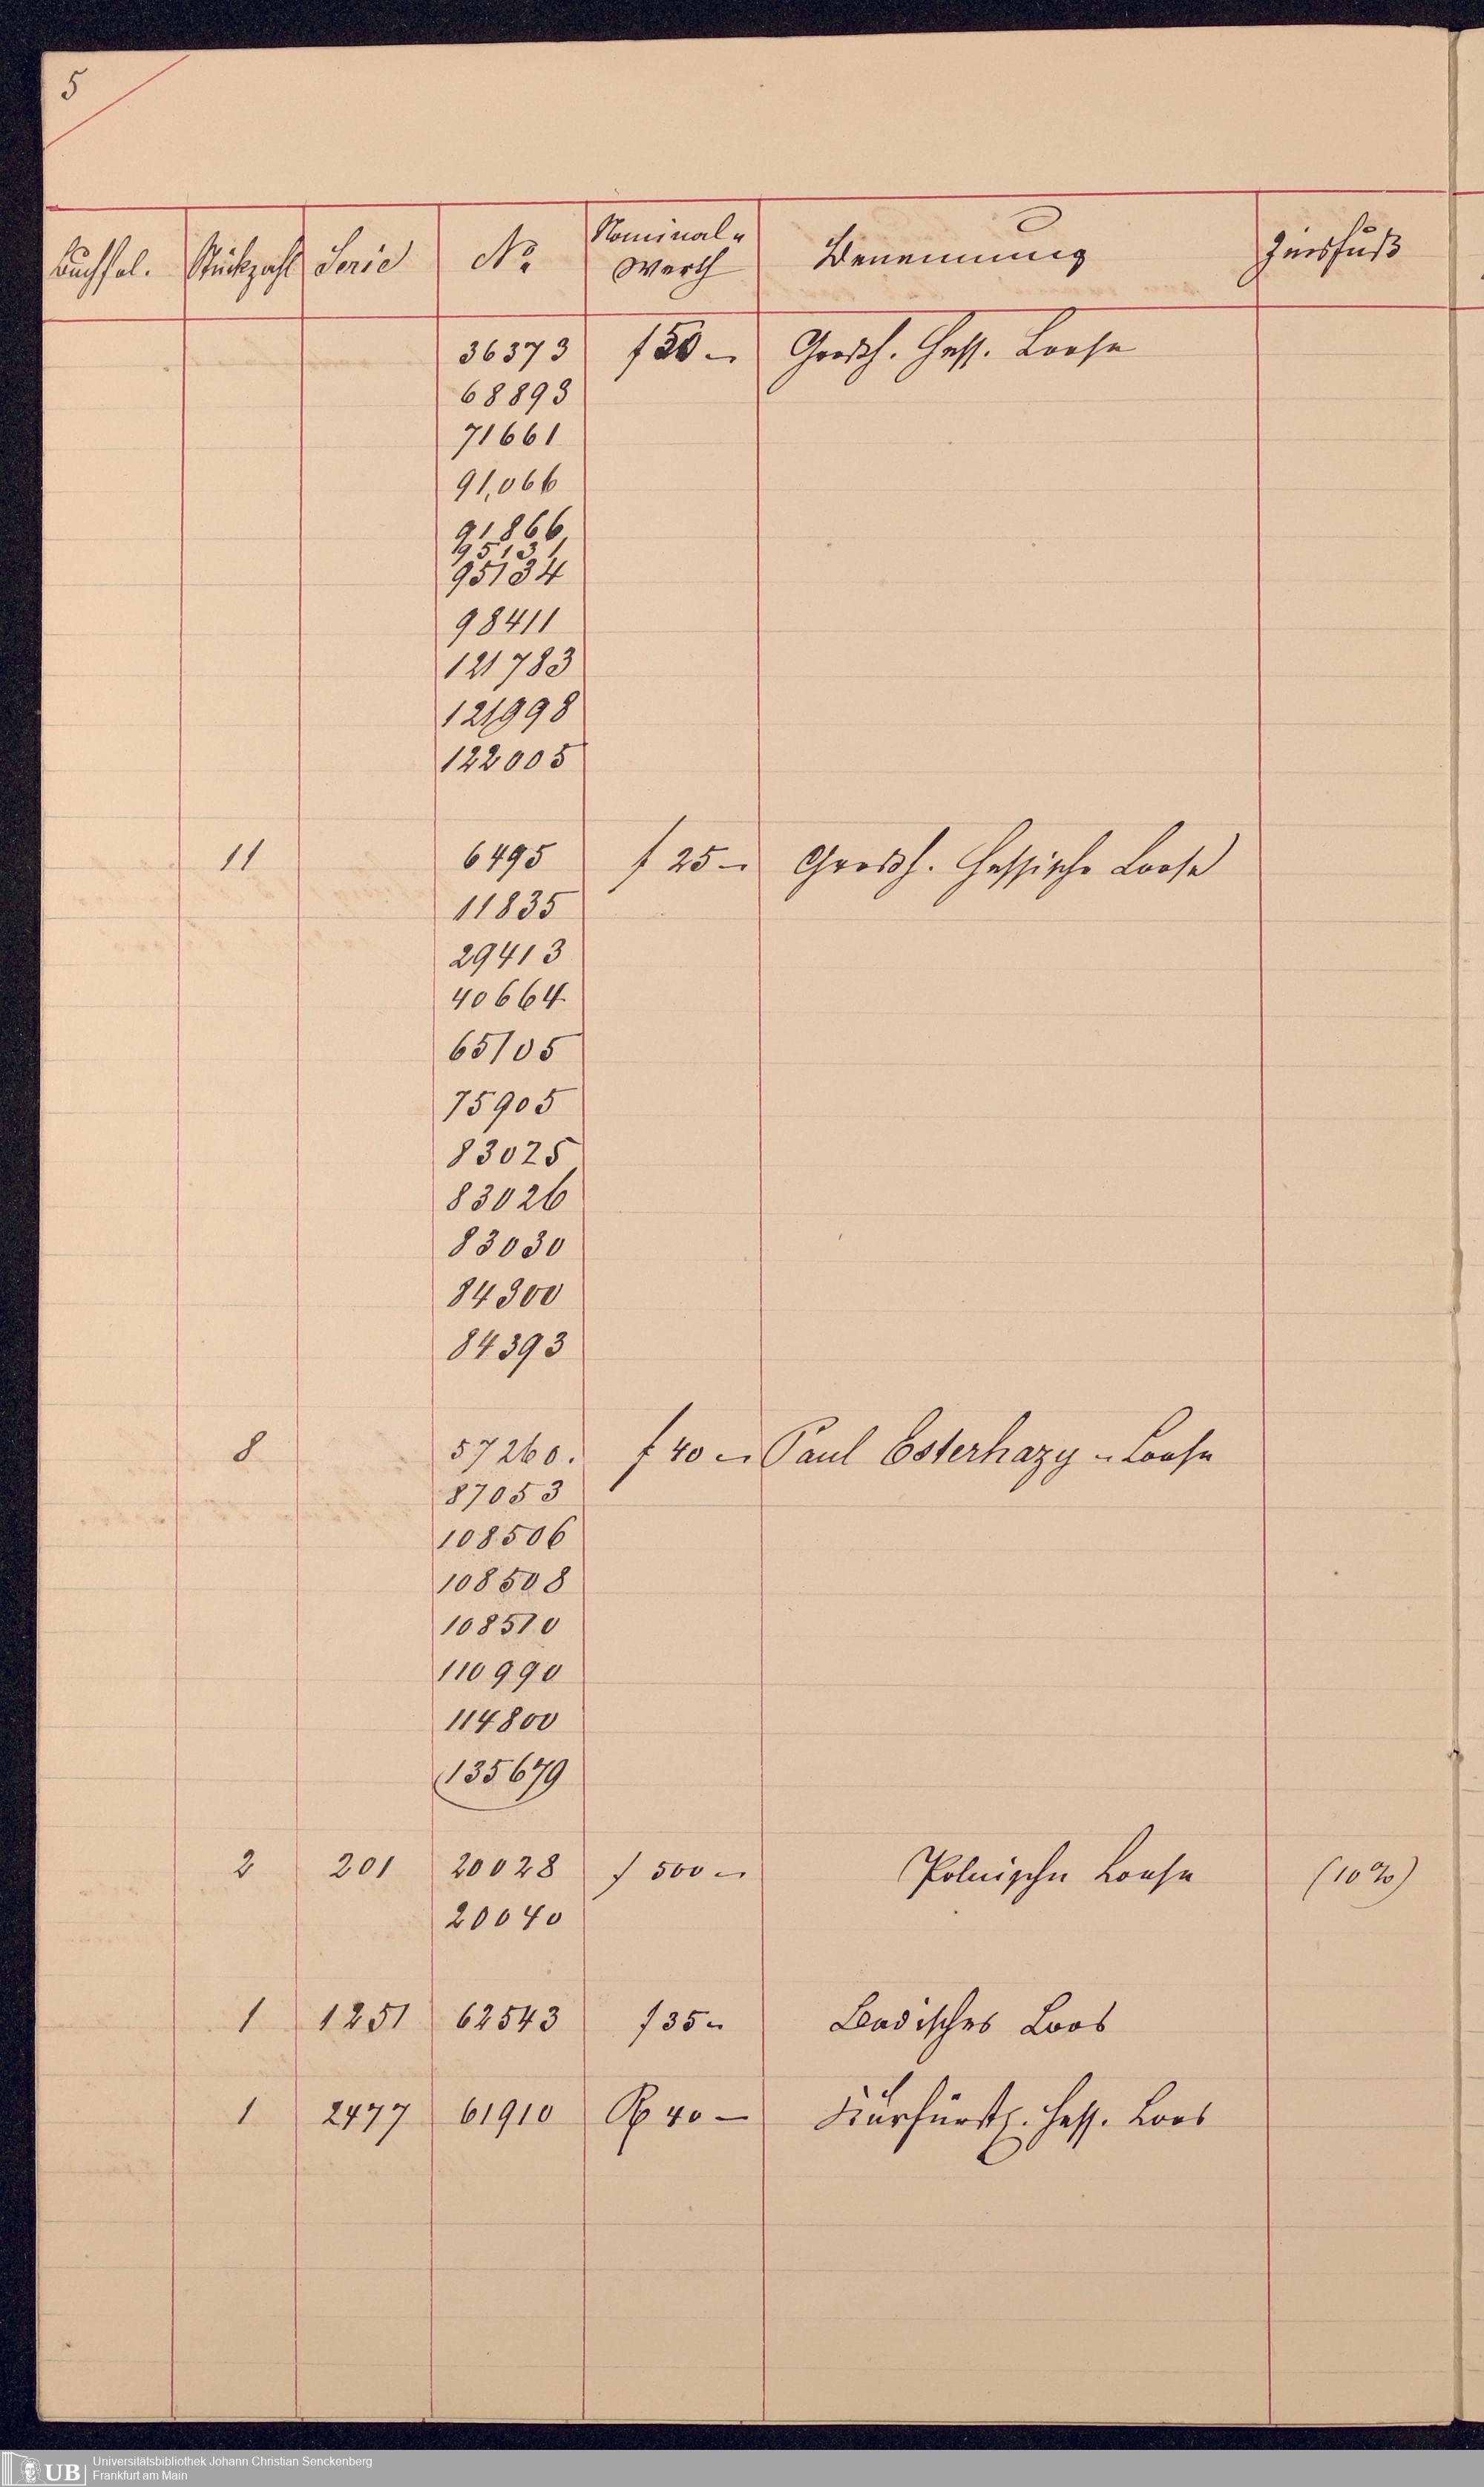 5
Buchfol. Stückzahl Serie No. Nominal-
Werth Benennung Zinsfuß
36373 f 50 – Grosh. Hess. Loose
68893
71661
91,066
91866
95131
95134
98411
121783
121998
122005
11 6495 f 25 – Grosh. Hessische Loose
11835
29413
40664
65105
75905
83025
83026
83030
84300
84393
8 57260. f 40 – Paul Esterhazy - Loose
87053
108506
108508
108510
110990
114800
135679
2 201 20028 f 500 – Polnische Loose (10%)
20040
1 1251 62543 f 35 – Badisches Loos
1 2477 61910 40 – Kurfürstl. Hess. Loos
UB Universitätsbibliothek Johann Christian Senckenberg
Frankfurt am Main